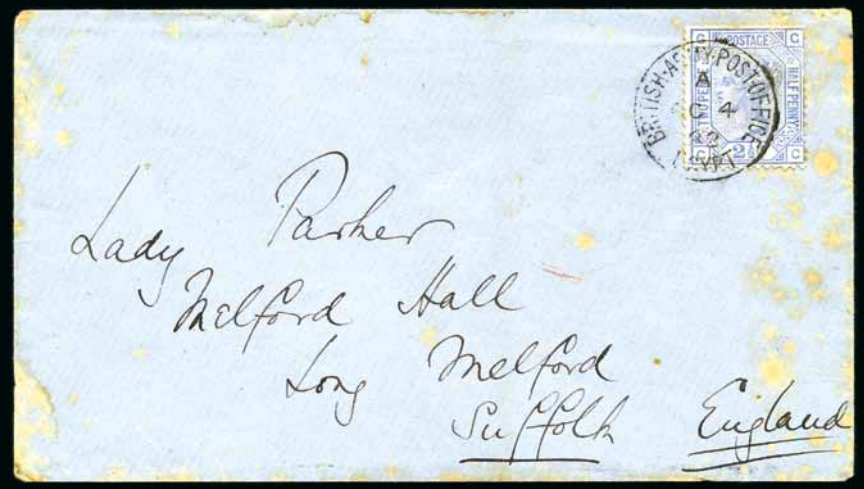 POSTAGE
HALFPENNY
G G
C
2½
BRITISH·ARMY·POST·OFFICE
A
4
Lady Parker
Melford Hall
Long Melford
Suffolk England